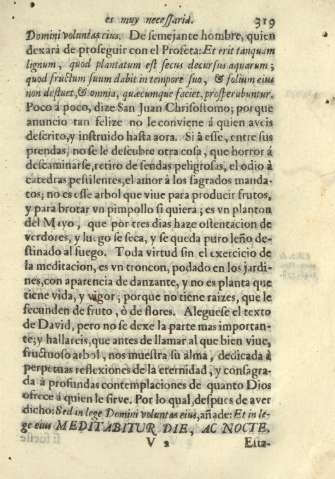 es muy necessaria. 319
Domini voluntas eius. De semejante hombre, quien
dexarà de proseguir con el Profeta: Et erit tanquam
lignum, quod plantatum est secus decursus aquarum;
quod fructum suum dabit in tempore suo, & folium eius
non defluet, & omnia, quæcumque faciet, prosperabuntur.
Poco à poco, dize San Juan Chrisostomo; porque
anuncio tan felize no le conviene à quien aveis
descrito, y instruido hasta aora. Si à esse, entre sus
prendas, no se le descubre otra cosa, que horror à
descaminarse, retiro de sendas peligrosas, el odio à
catedras pestilentes, el amor à los sagrados manda-
tos; no es esse arbol que viue para producir frutos,
y para brotar vn pimpollo si quiera; es vn planton
del Mayo, que por tres dias haze ostentacion de
verdores, y luego se seca, y se queda puro leño de-
stinado al fuego. Toda virtud sin el exercicio de
la meditacion, es vn troncon, podado en los jardi-
nes, con aparencia de danzante, y no es planta que
tiene vida, y vigor; porque no tiene raizes, que le
fecunden de fruto, ò de flores. Aleguese el texto
de David, pero no se dexe la parte mas importan-
te; y hallareis, que antes de llamar al que bien viue,
fructuoso arbol, nos muestra su alma, dedicada à
perpetuas reflexiones de la eternidad, y consagra-
da à profundas contemplaciones de quanto Dios
ofrece à quien le sirve. Por lo qual, despues de aver
dicho: Sed in lege Domini voluntas eius, añade: Et in le-
ge eius MEDITABITUR DIE, AC NOCTE.
V 2 Esta-